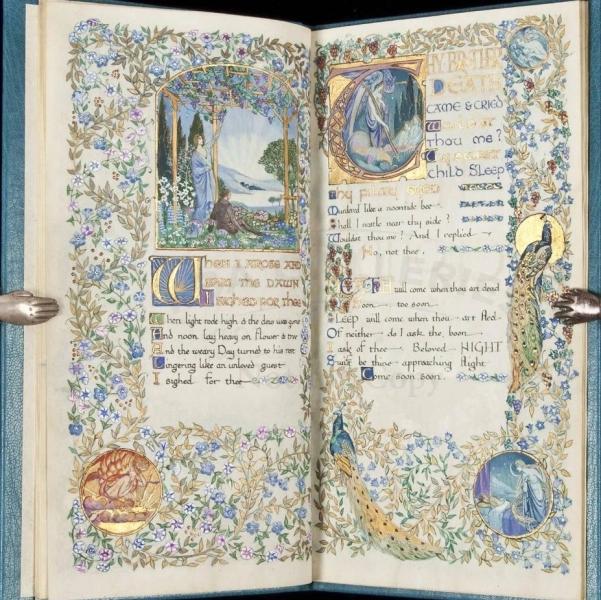 WHEN I AROSE AND
SAW THE DAWN
I SIGHED FOR THEE
When light rode high & the dew was gone
And noon lay heavy on flower & tree
And the weary Day turned to his rest
Lingering like an unloved guest
I sighed for thee
THY BROTHER
DEATH
CAME & CRIED
WOULDST
THOU ME?
THY SWEET
CHILD SLEEP
THY FILMY EYED
Murmured like a noontide bee
Shall I nestle near thy side?
Wouldst thou me? And I replied
No, not thee.
DEATH will come when thou art dead
Soon too soon
SLEEP will come when thou art fled
Of neither do I ask the boon
I ask of thee Beloved NIGHT
Swift be thine approaching flight
Come soon soon.